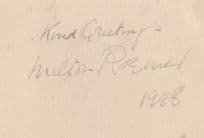 Kind Greetings
Milton Rosmer
1928